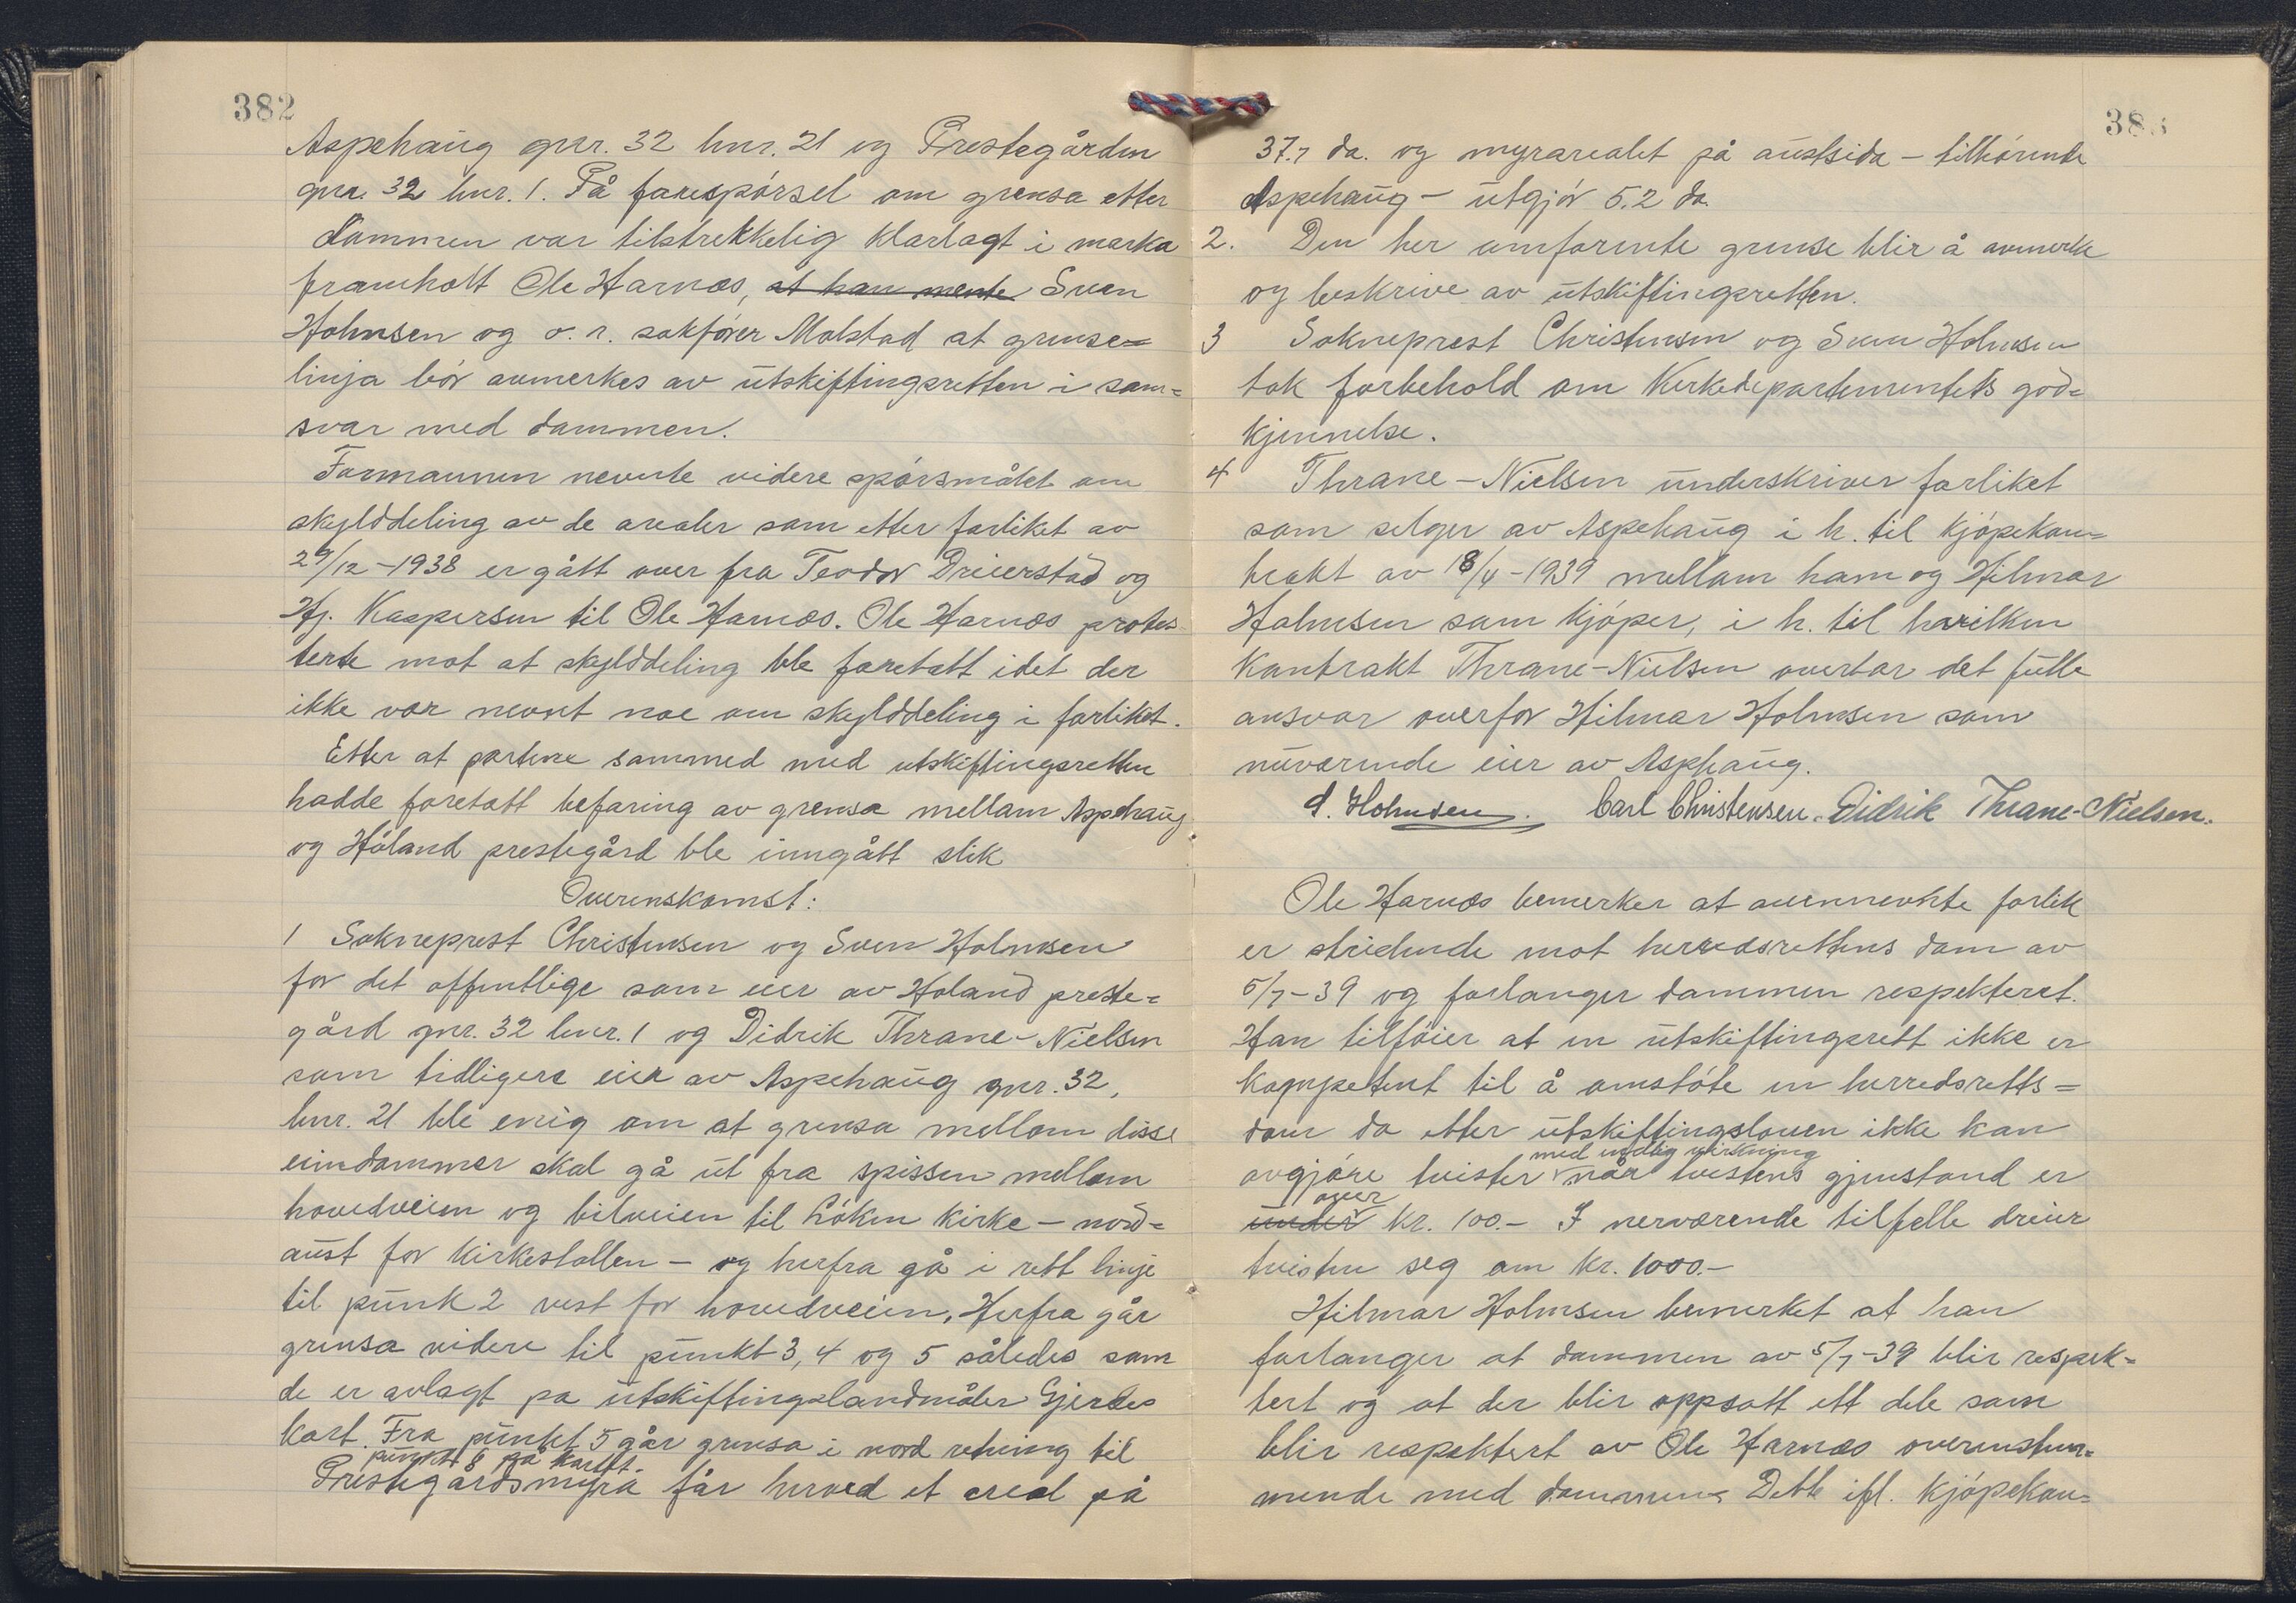 382
Aspehaug gnr. 32 bnr. 21 og Prestegården
gnr. 32 bnr. 1. På forespörsel om grensa etter
dommen var tilstrekkelig klarlagt i marka
framholt Ole Harnæs, at han mente Sven
Holmsen og o. r. sakförer Molstad at grense=
linja bör avmerkes av utskiftingsretten i sam=
svar med dommen.
Formannen nevnte videre spörsmålet om
skylddeling av de arealer som etter forliket av
29/12-1938 er gått over fra Teodor Drieverstad og
Hj. Kaspersen til Ole Harnæs. Ole Harnæs protes
terte mot at skylddeling ble foretatt idet der
ikke var nevnt noe om skylddeling i forliket.
Etter at partene sammed med utskiftingsretten
hadde foretatt befaring av grensa mellom Aspehaug
og Höland prestegård ble inngått slik
Overenskomst:
1 Sokneprest Christensen og Sven Holmsen
for det offentlige som eier av Höland preste=
gård gnr. 32 bnr. 1 og Didrik Thrane-Nielsen
som tidligere eier av Aspehaug gnr. 32,
bnr. 21 ble enig om at grensa mellom disse
eiendommer skal gå ut fra spissen mellom
hovedveien og bilveien til Löken kirke – nord=
aust for kirkestallen – og herfra gå i rett linje
til punk 2 vest for hovedveien. Herfra går
grensa videre til punkt 3, 4 og 5 således som
de er avlagt pa utskiftingslandmåler Gjerdes
kart. Fra punkt 5 går grensa i nord retning til
punkt 8 på kartet.
Prestegårdsmyra får herved et areal på
383
37.7 da. og myrarealet på austsida – tilhörende
Aspehaug – utgjör 5.2 da.
2. Den her omforente grense blir å avmerke
og beskrive av utskiftingsretten.
3 Sokneprest Christensen og Sven Holmsen
tok forbehold om Kirkedepartementets god=
kjennelse.
4 Thrane-Nielsen underskriver forliket
som selger av Aspehaug i h. til kjöpekon=
trakt av 18/4-1939 mellom ham og Hilmar
Holmsen som kjöper, i h. til hvilken
kontrakt Thrane-Nielsen overtar det fulle
ansvar overfor Hilmar Holmsen som
nuværende eier av Asphaug.
S. Holmsen. Carl Christensen. Didrik Thrane-Nielsen.
Ole Harnæs bemerker at ovennevnte forlik
er stridende mot herredsrettens dom av
5/7-39 og forlanger dommen respekteret.
Han tilföier at en utskiftingsrett ikke er
kompetent til å omstöte en herredsretts=
dom da etter utskiftingsloven ikke kan
med endlig virkning
avgjöre tvister når tvistens gjenstand er
over
under kr. 100.– I nerværende tilfelle dreier
tvisten seg om kr. 1000.–
Hilmar Holmsen bemerket at han
forlanger at dommen av 5/7-39 blir respek=
tert og at der blir oppsatt ett dele som
blir respektert av Ole Harnæs overenstem=
mende med dommen. Dette ifl. kjöpekon=